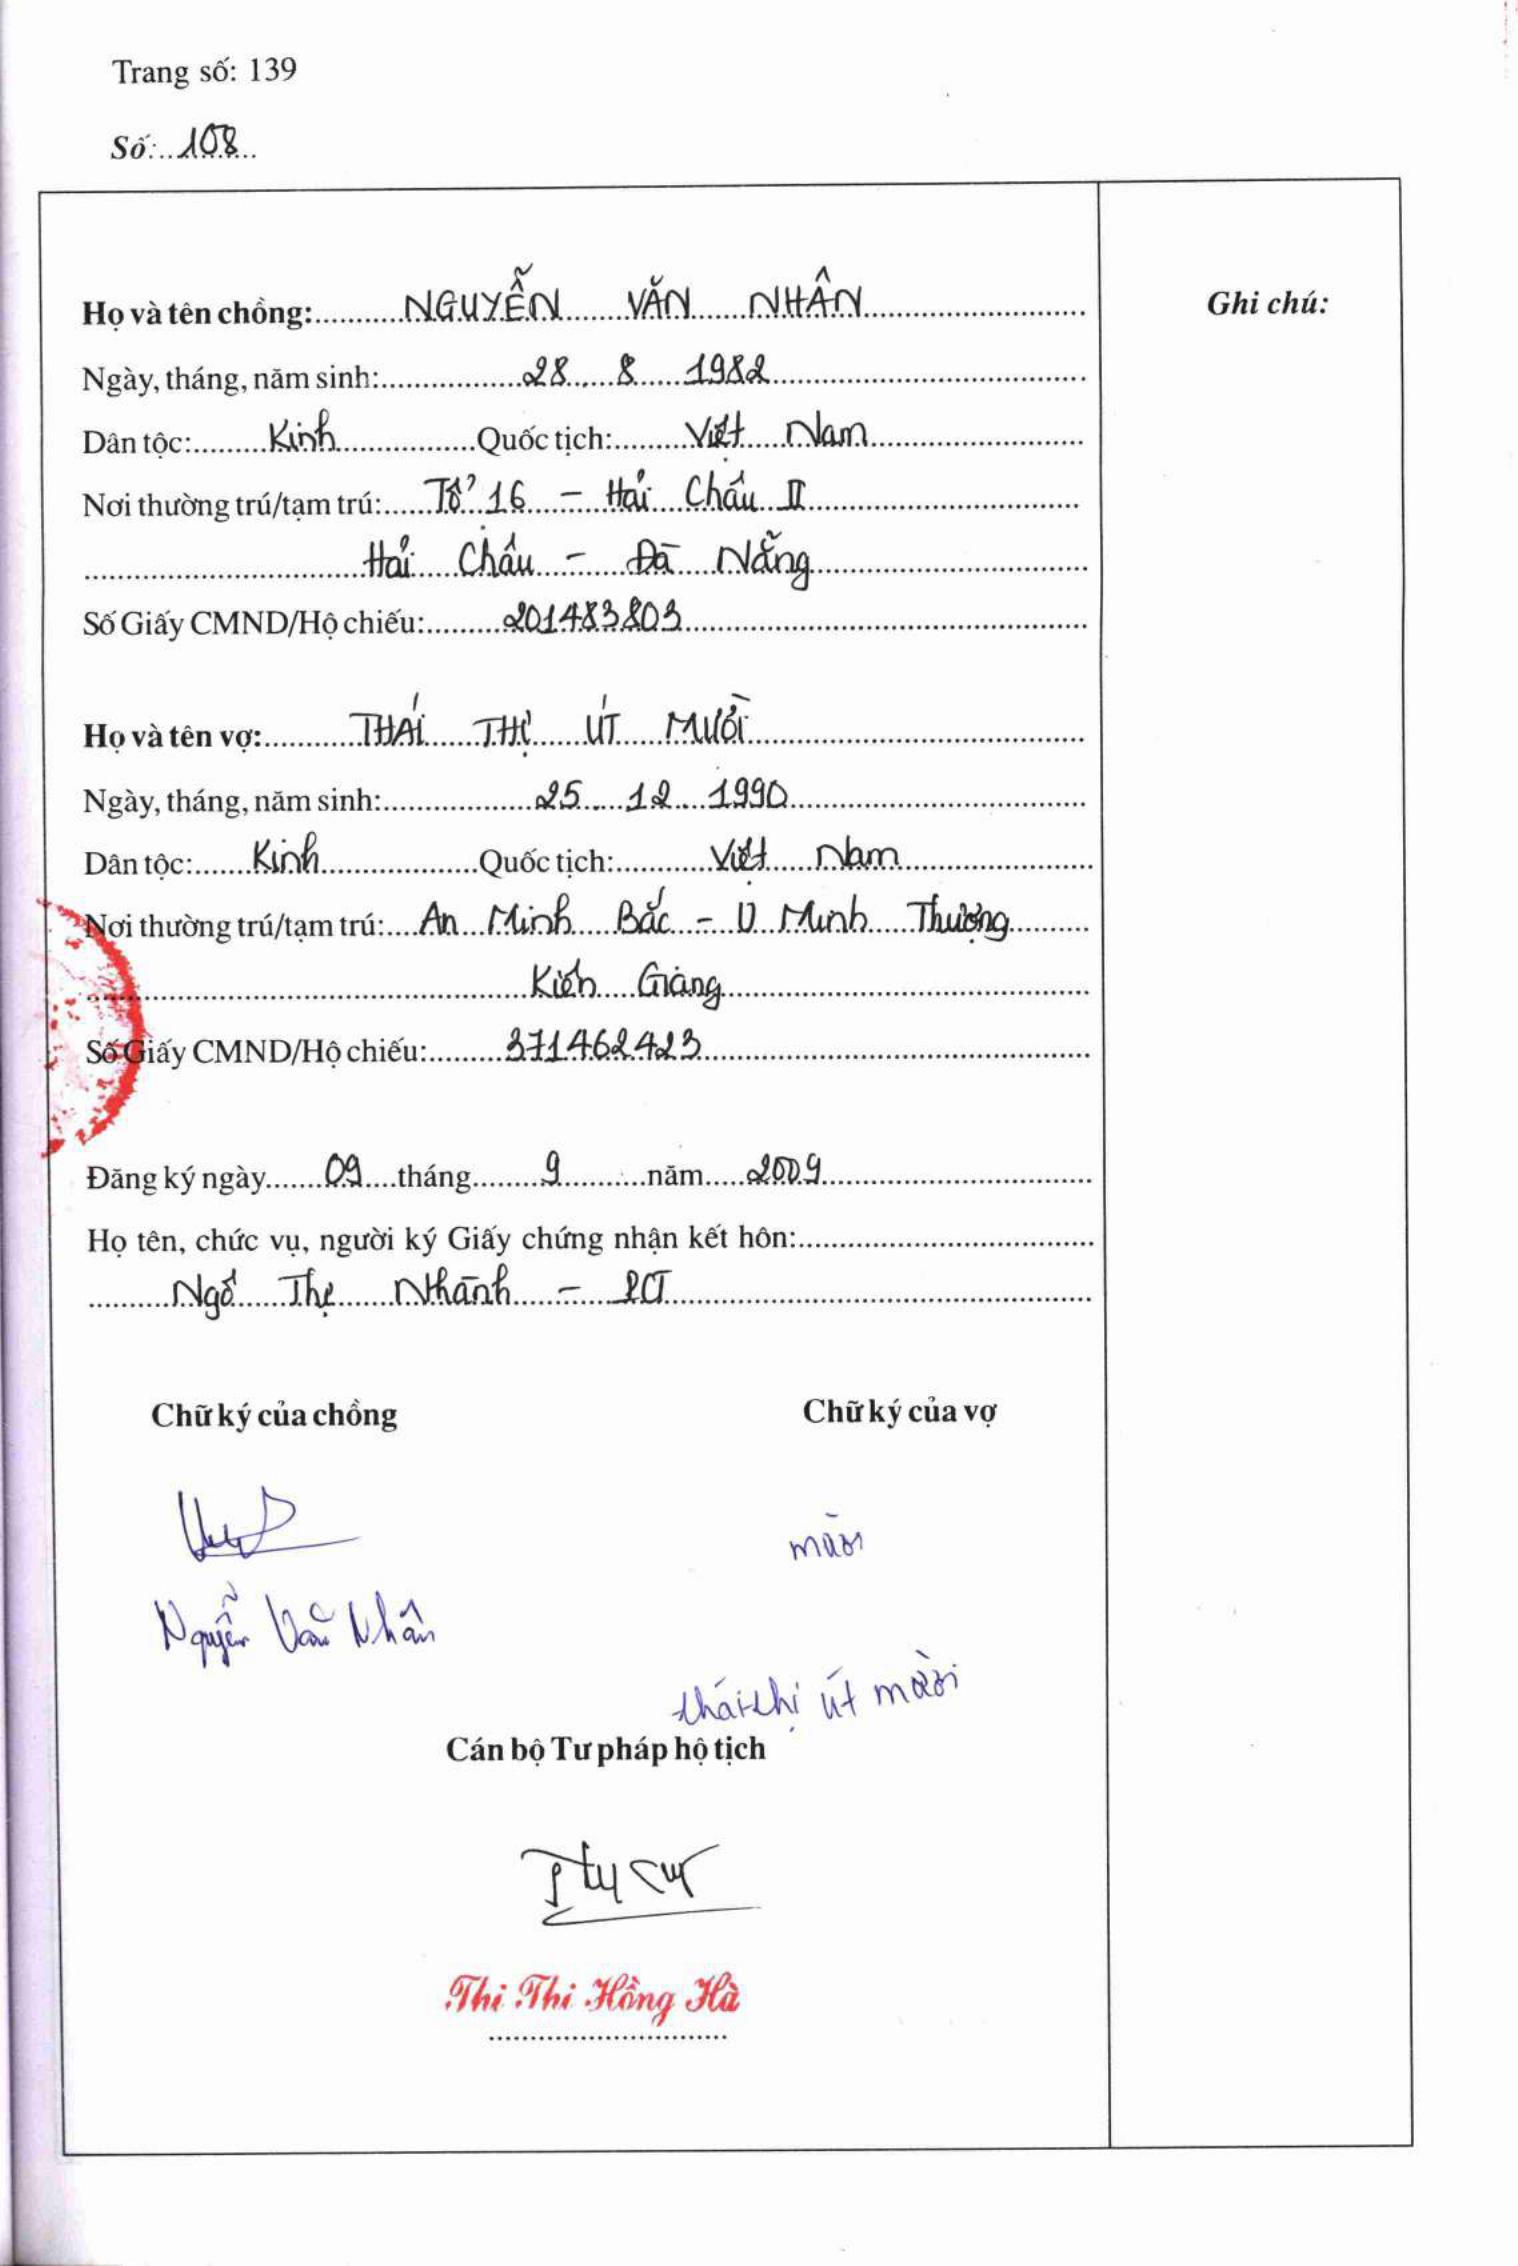 Trang số: 139
Số: 108
Họ và tên chồng: NGUYỄN VĂN NHÂN
Ghi chú:
Ngày, tháng, năm sinh: 28 8 1982
Dân tộc: Kinh Quốc tịch: Việt Nam
Nơi thường trú/tạm trú: Tổ 16 - Hải Châu II
Hải Châu - Đà Nẵng
Số Giấy CMND/Hộ chiếu: 201483803
Họ và tên vợ: THÁI THỊ ÚT MƯỜI
Ngày, tháng, năm sinh: 25 12 1990
Dân tộc: Kinh Quốc tịch: Việt Nam
Nơi thường trú/tạm trú: An Minh Bắc - U Minh Thượng
Kiên Giang
Số Giấy CMND/Hộ chiếu: 371462423
Đăng ký ngày 09 tháng 9 năm 2009
Họ tên, chức vụ, người ký Giấy chứng nhận kết hôn:
Ngô Thị Nhành - PCT
Chữ ký của chồng Chữ ký của vợ
mười
Nguyễn Văn Nhân
thái thị út mười
Cán bộ Tư pháp hộ tịch
Thi Thi Hồng Hà